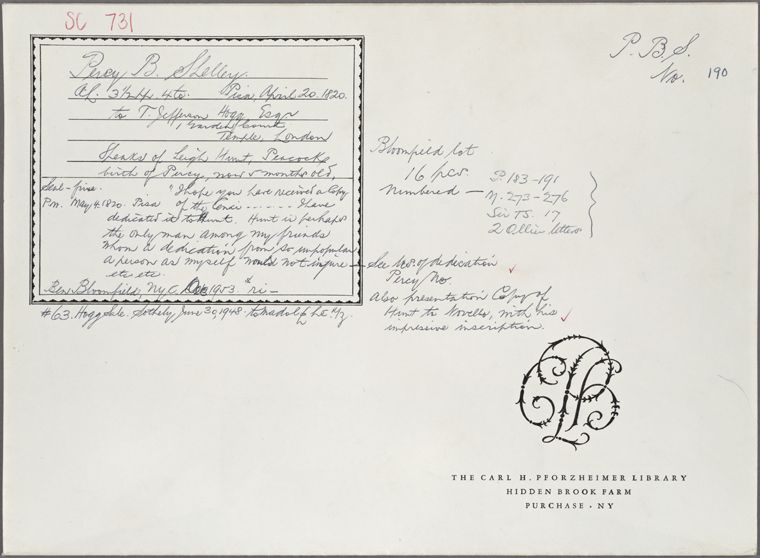 SC 731
P. B. S.
No. 190
Percy B. Shelley.
AL. 3½ pp. 4to. Pisa, April 20. 1820.
to T. Jefferson Hogg, Esqr
1 Garden Court
Temple, London
Speaks of Leigh Hunt, Peacock,
birth of Percy, now 5 months old,
Seal - fine. "I hope you have received a Copy
P.m. May 4. 1820. Pisa of the Cenci - - - - - - I have
dedicated it to Hunt. Hunt is perhaps
the only man among my friends
whom a dedication from so unpopular
a person as myself would not injure -
etc etc.
Ben Bloomfield, N.Y.C. Dec 1953. ri -
#63. Hogg Sale. Sotheby, June 30, 1948 -
Bloomfield lot
16 pcs.
numbered -
S 183-191
M. 273-276
Sir T S. 17
2 Ollier letters
See Ms. of dedication
Percy No.
Also presentation Copy of
Hunt to Novello, with his
impressive inscription.
THE CARL H. PFORZHEIMER LIBRARY
HIDDEN BROOK FARM
PURCHASE · NY